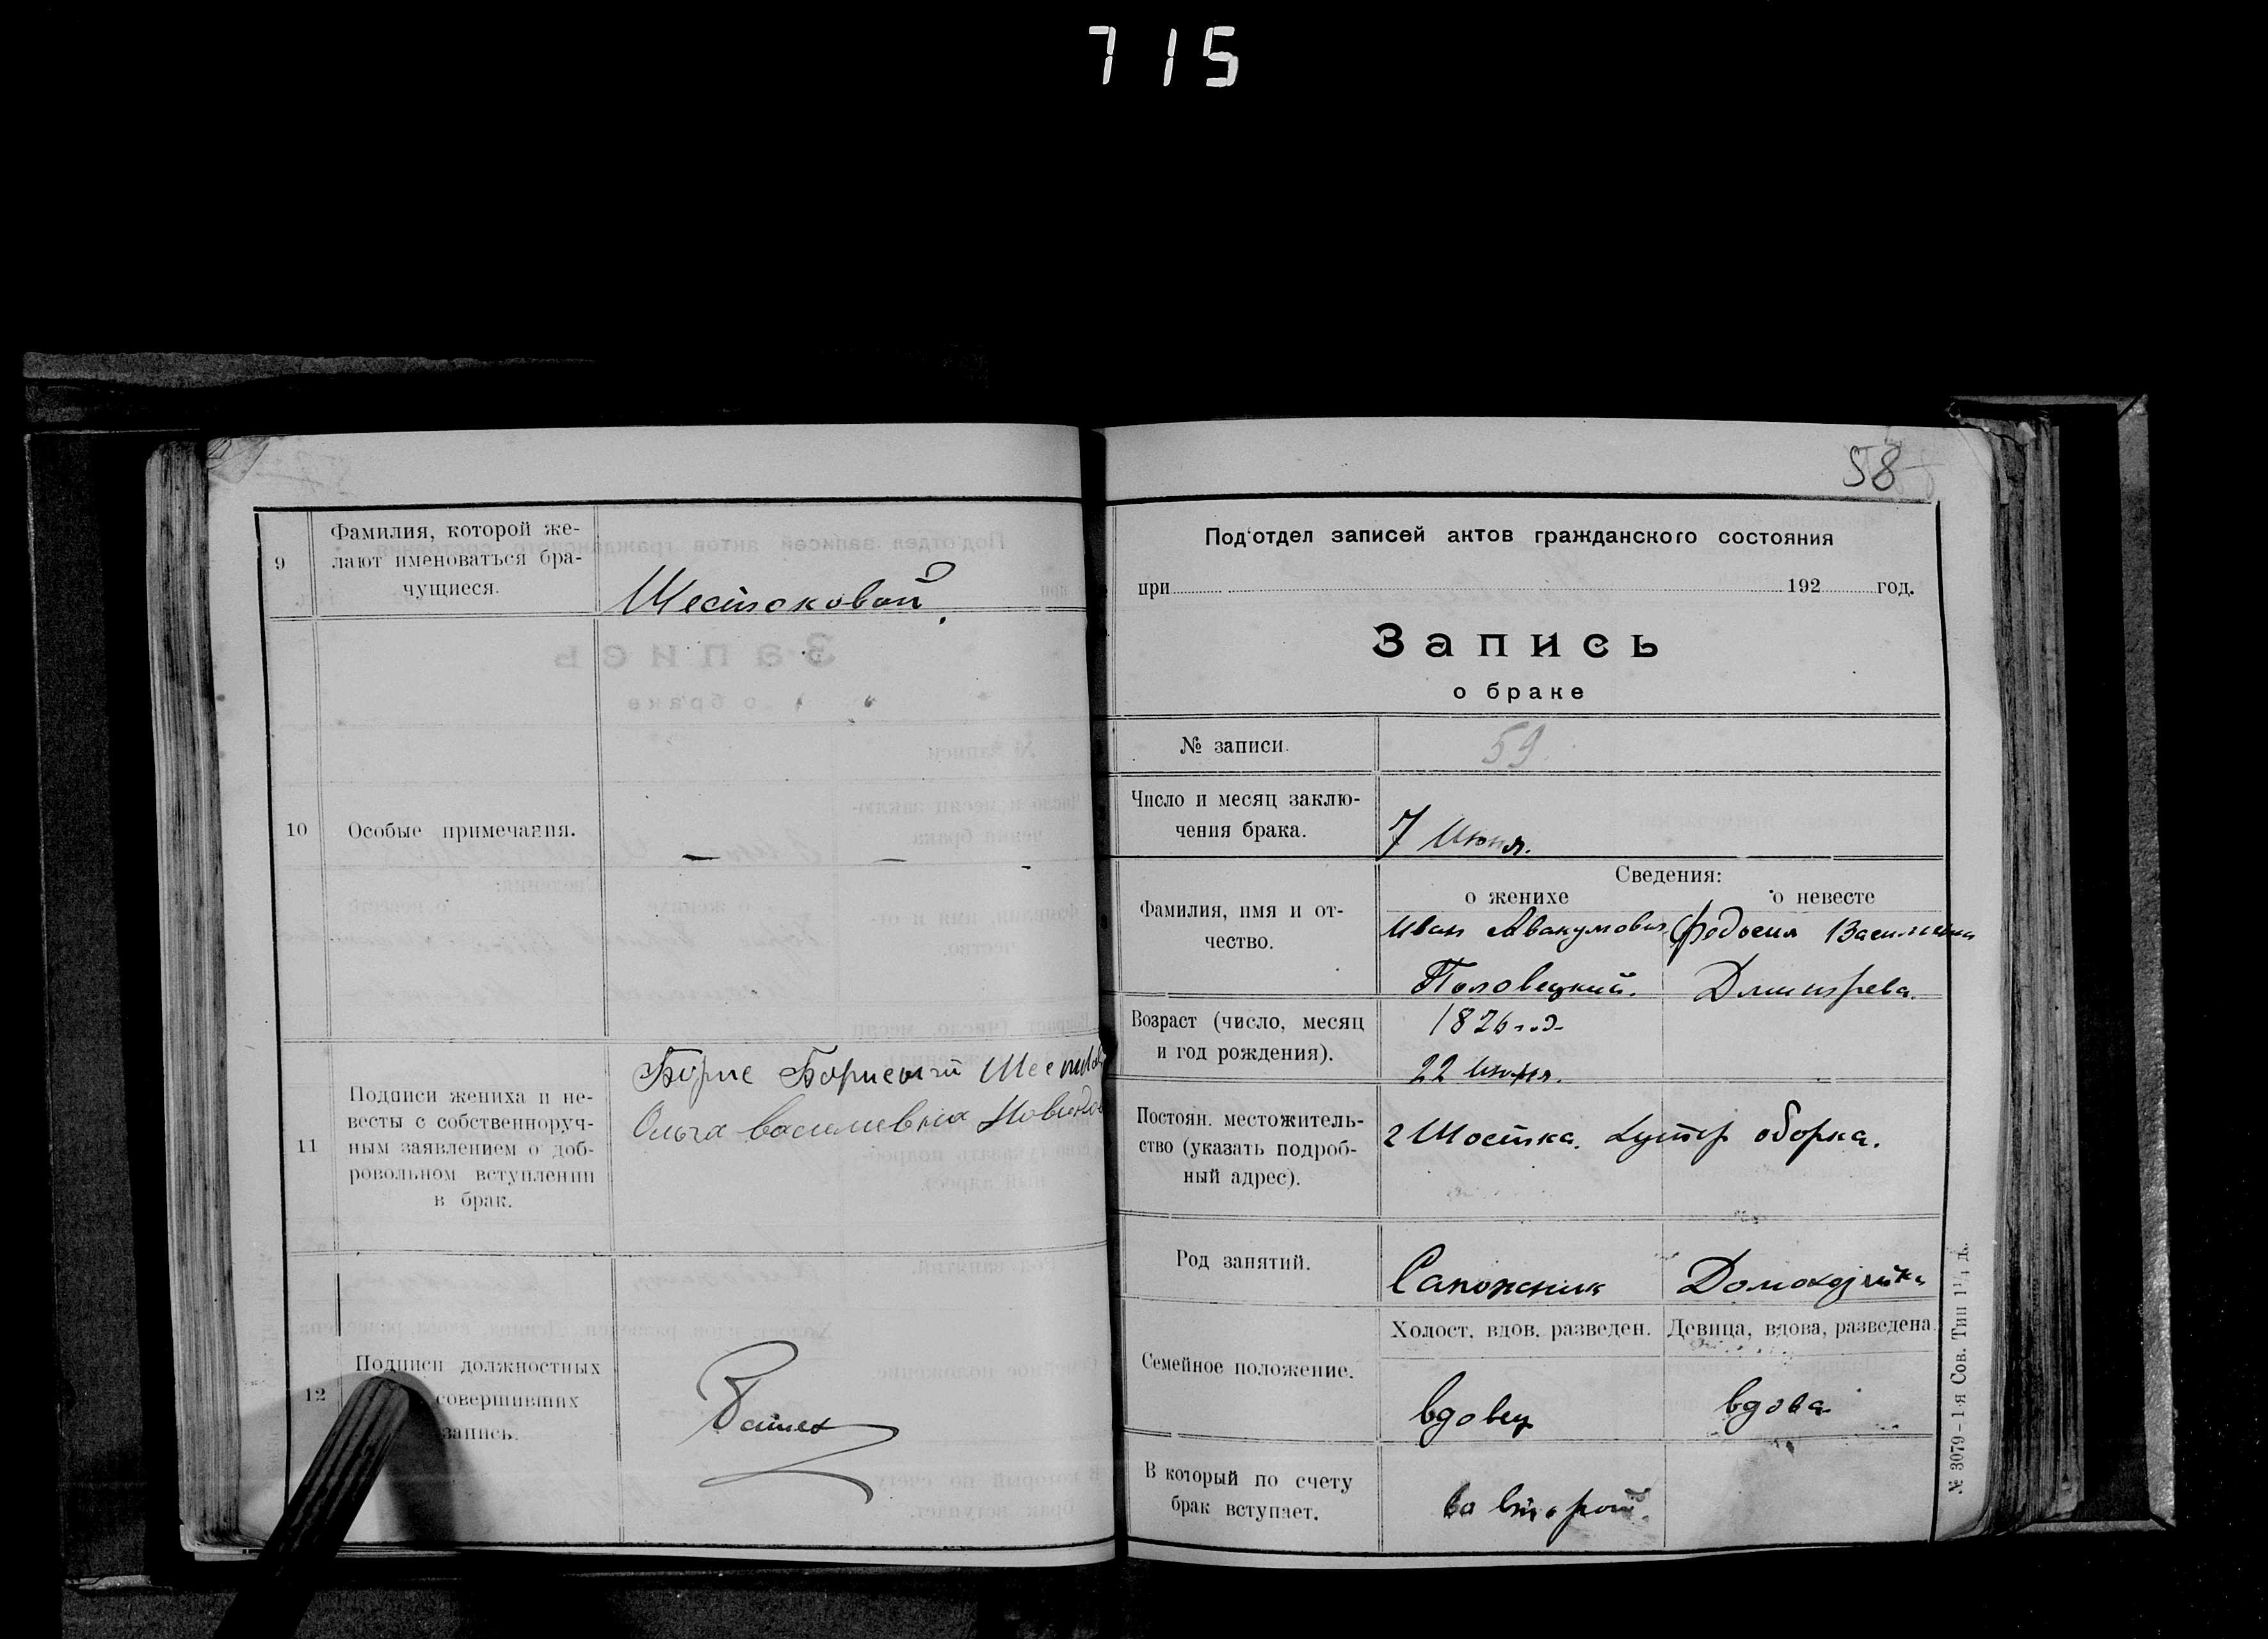 715
9
Фамилия, которой же-
лают именоваться бра-
чущиеся.
Шестаковой
10
Особые примечания.
— — -
11
Подписи жениха и не-
весты с собственноруч-
ным заявлением о доб-
ровольном вступлении
в брак.
Борис
Ольга
12
Подписи должностных
совершивших
запись.
58
Под‘отдел записей актов гражданского состояния
при 192 год.
Запись
о браке
№ записи.
59
Число и месяц заклю-
чения брака.
7 Июня.
Сведения:
о женихе
о невесте
Фамилия, имя и от-
чество.
Иван Авакумович
Половецкий.
Федосия
Возраст (число, месяц
и год рождения).
1826 год
22 июня.
Постоян. местожитель-
ство (указать подроб-
ный адрес).
г Шостка. хутор оборка.
Род занятий.
Сапожник
Семейное положение.
Холост, вдов, разведен.
Девица, вдова, разведена.
вдовец
вдова
В который по счету
брак вступает.
во второй.
№ 3079–1-я Сов. Тип